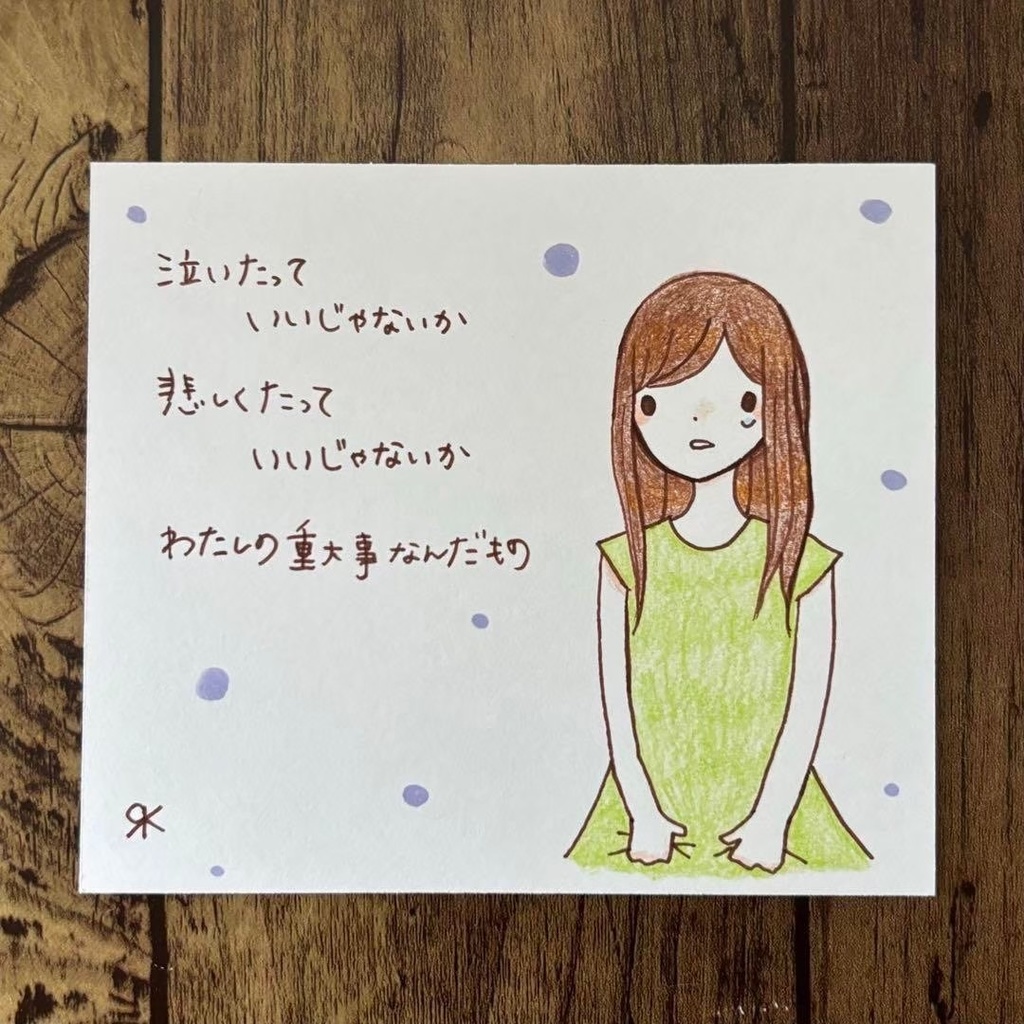 泣いたって
いいじゃないか
悲しくたって
いいじゃないか
わたしの重大事なんだもの